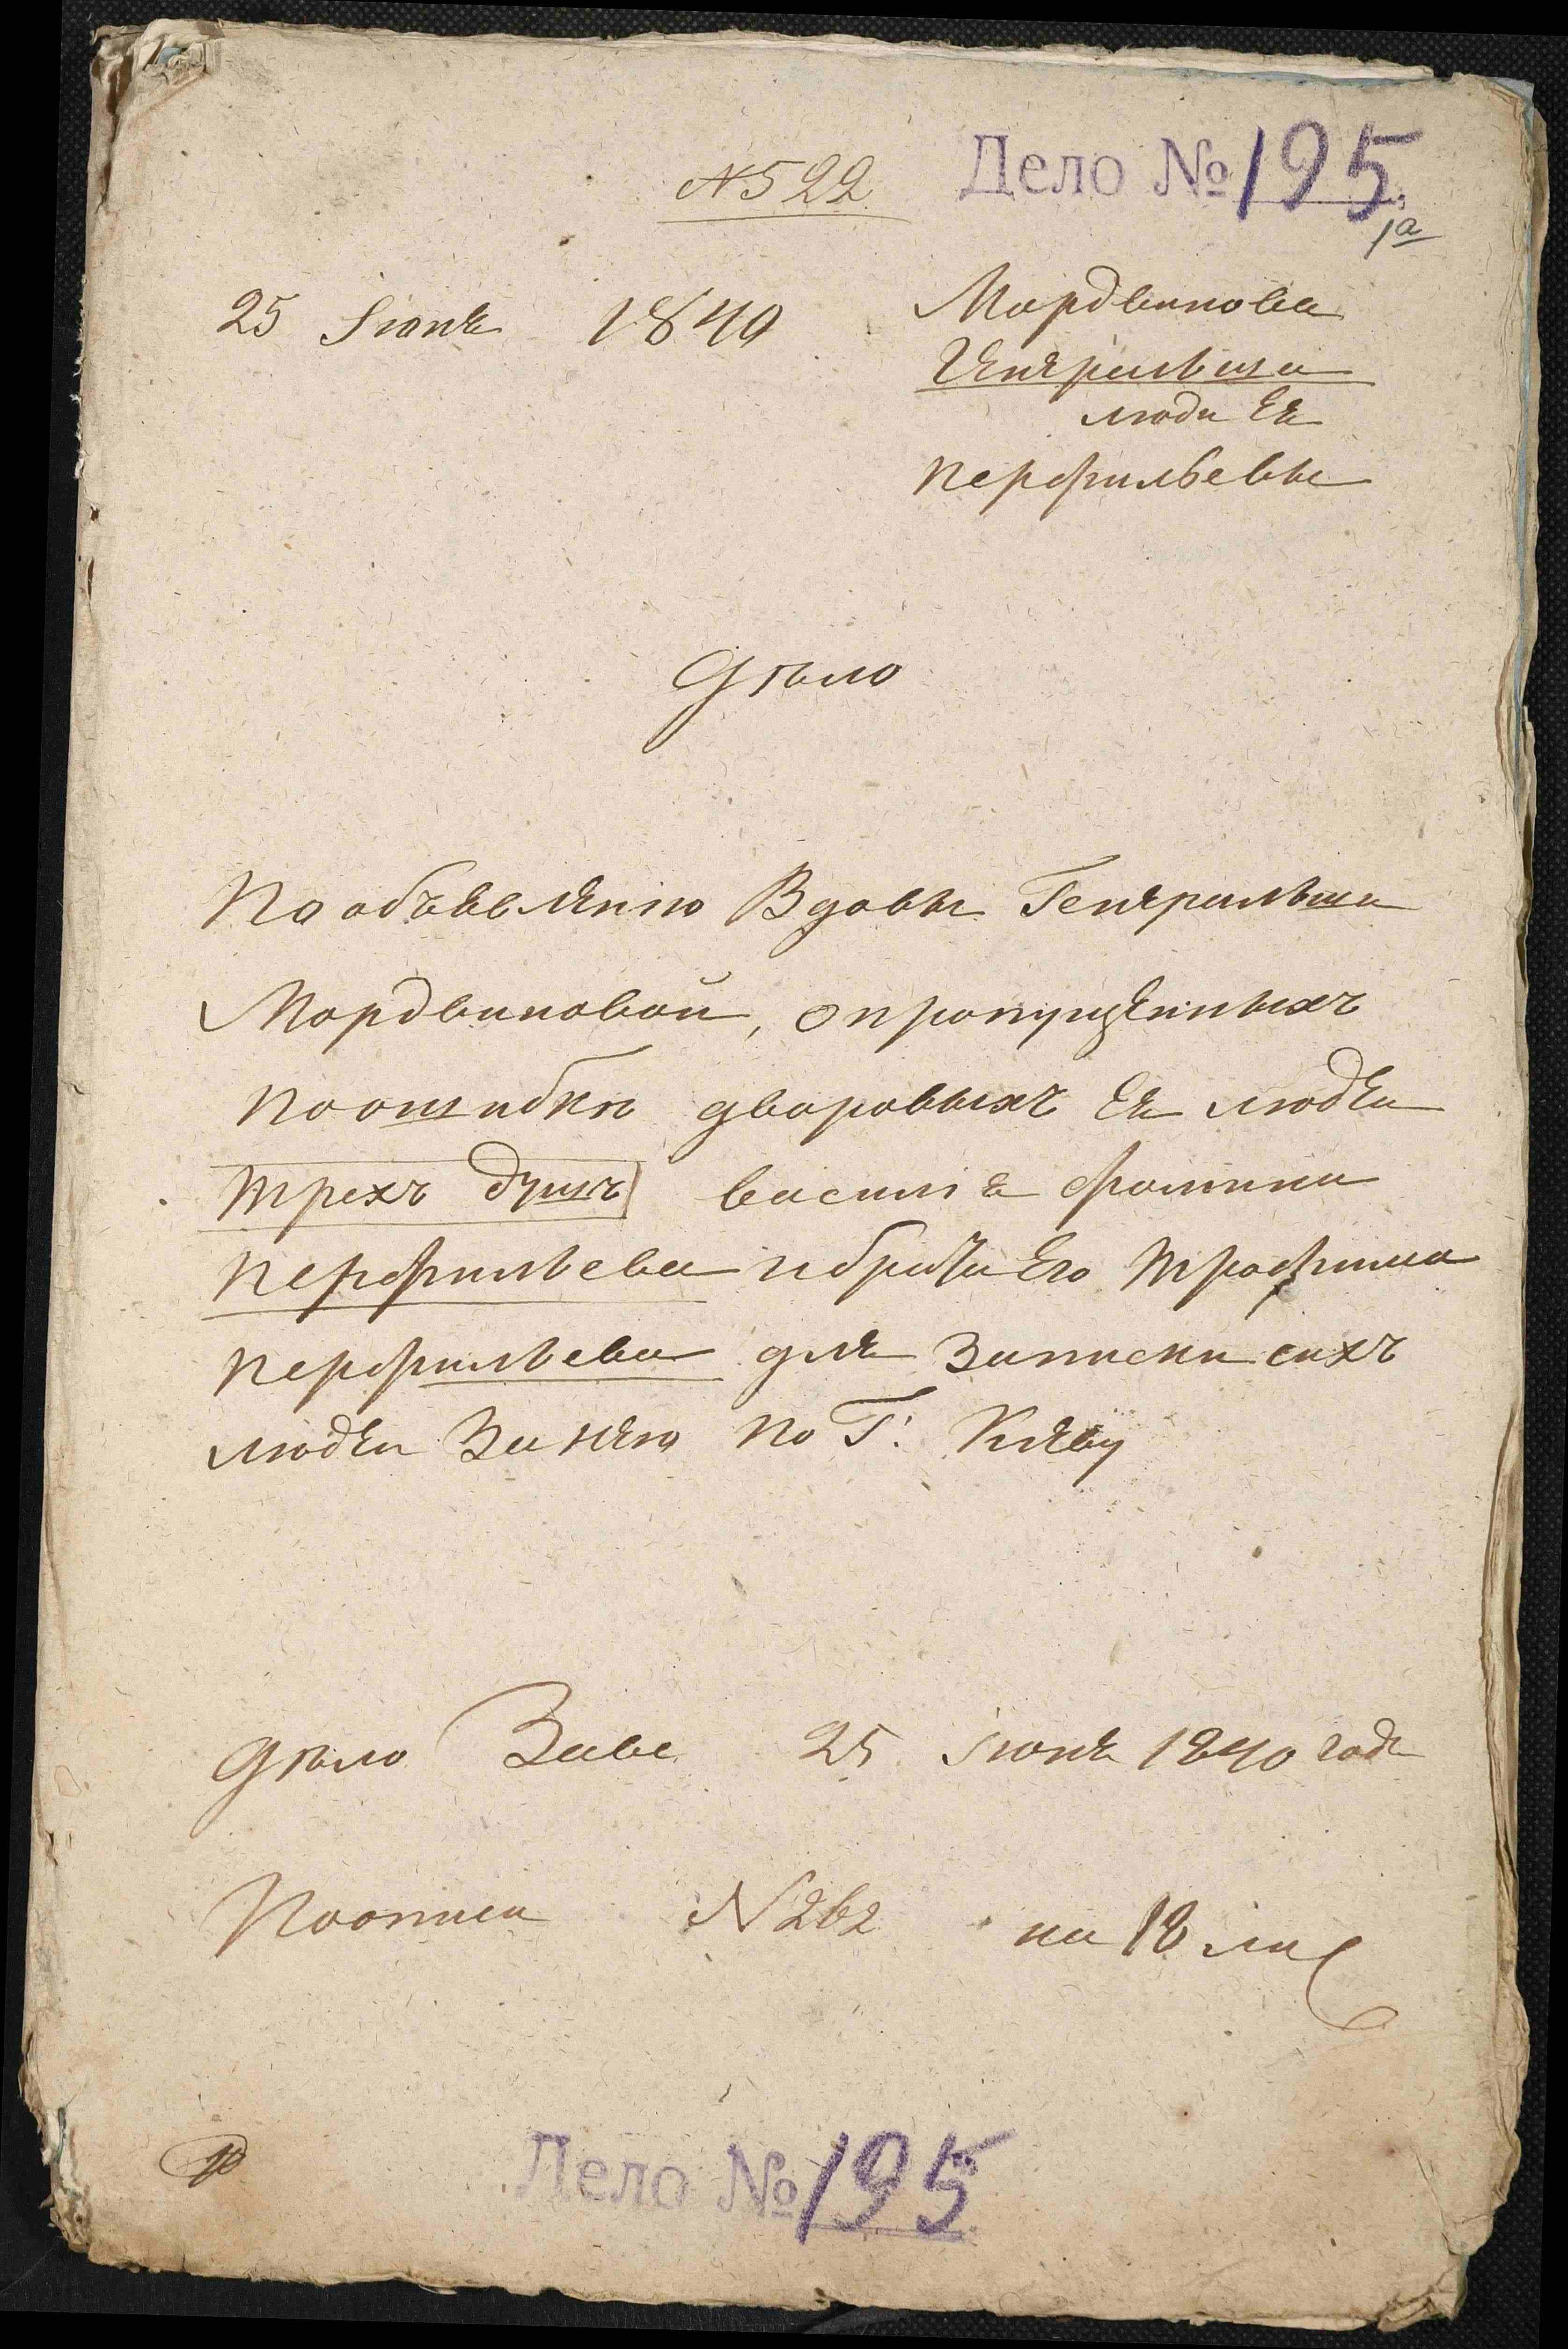 № 522
Дело № 195
1а
25 Іюня 1840
Мордвинова
Генеральша
люди Ея
Перфильевы
Дѣло
По объявленію Вдовы Генеральши
Мордвиновой, о пропущенныхъ
по ошибкѣ дворовыхъ Ея людей
трехъ душъ василія фомина
Перфильева и брата Его трофима
Перфильева для записки сихъ
людей за нею по Г. Кіеву
Дѣло 25 Іюня 1840 года
По описи № 262 на 18 лис
Дело № 195